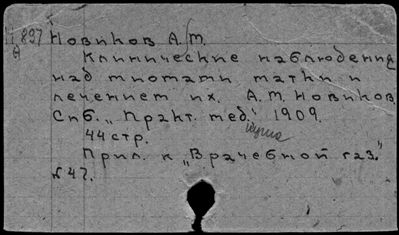 897 Новиков А.М.
Клинические наблюдения
над миомами матки и
лечением их. А.М. Новиков.
Спб. „Практ. мед." 1909.
44 стр.
Прил. к „Врачебной газ."
№ 47.